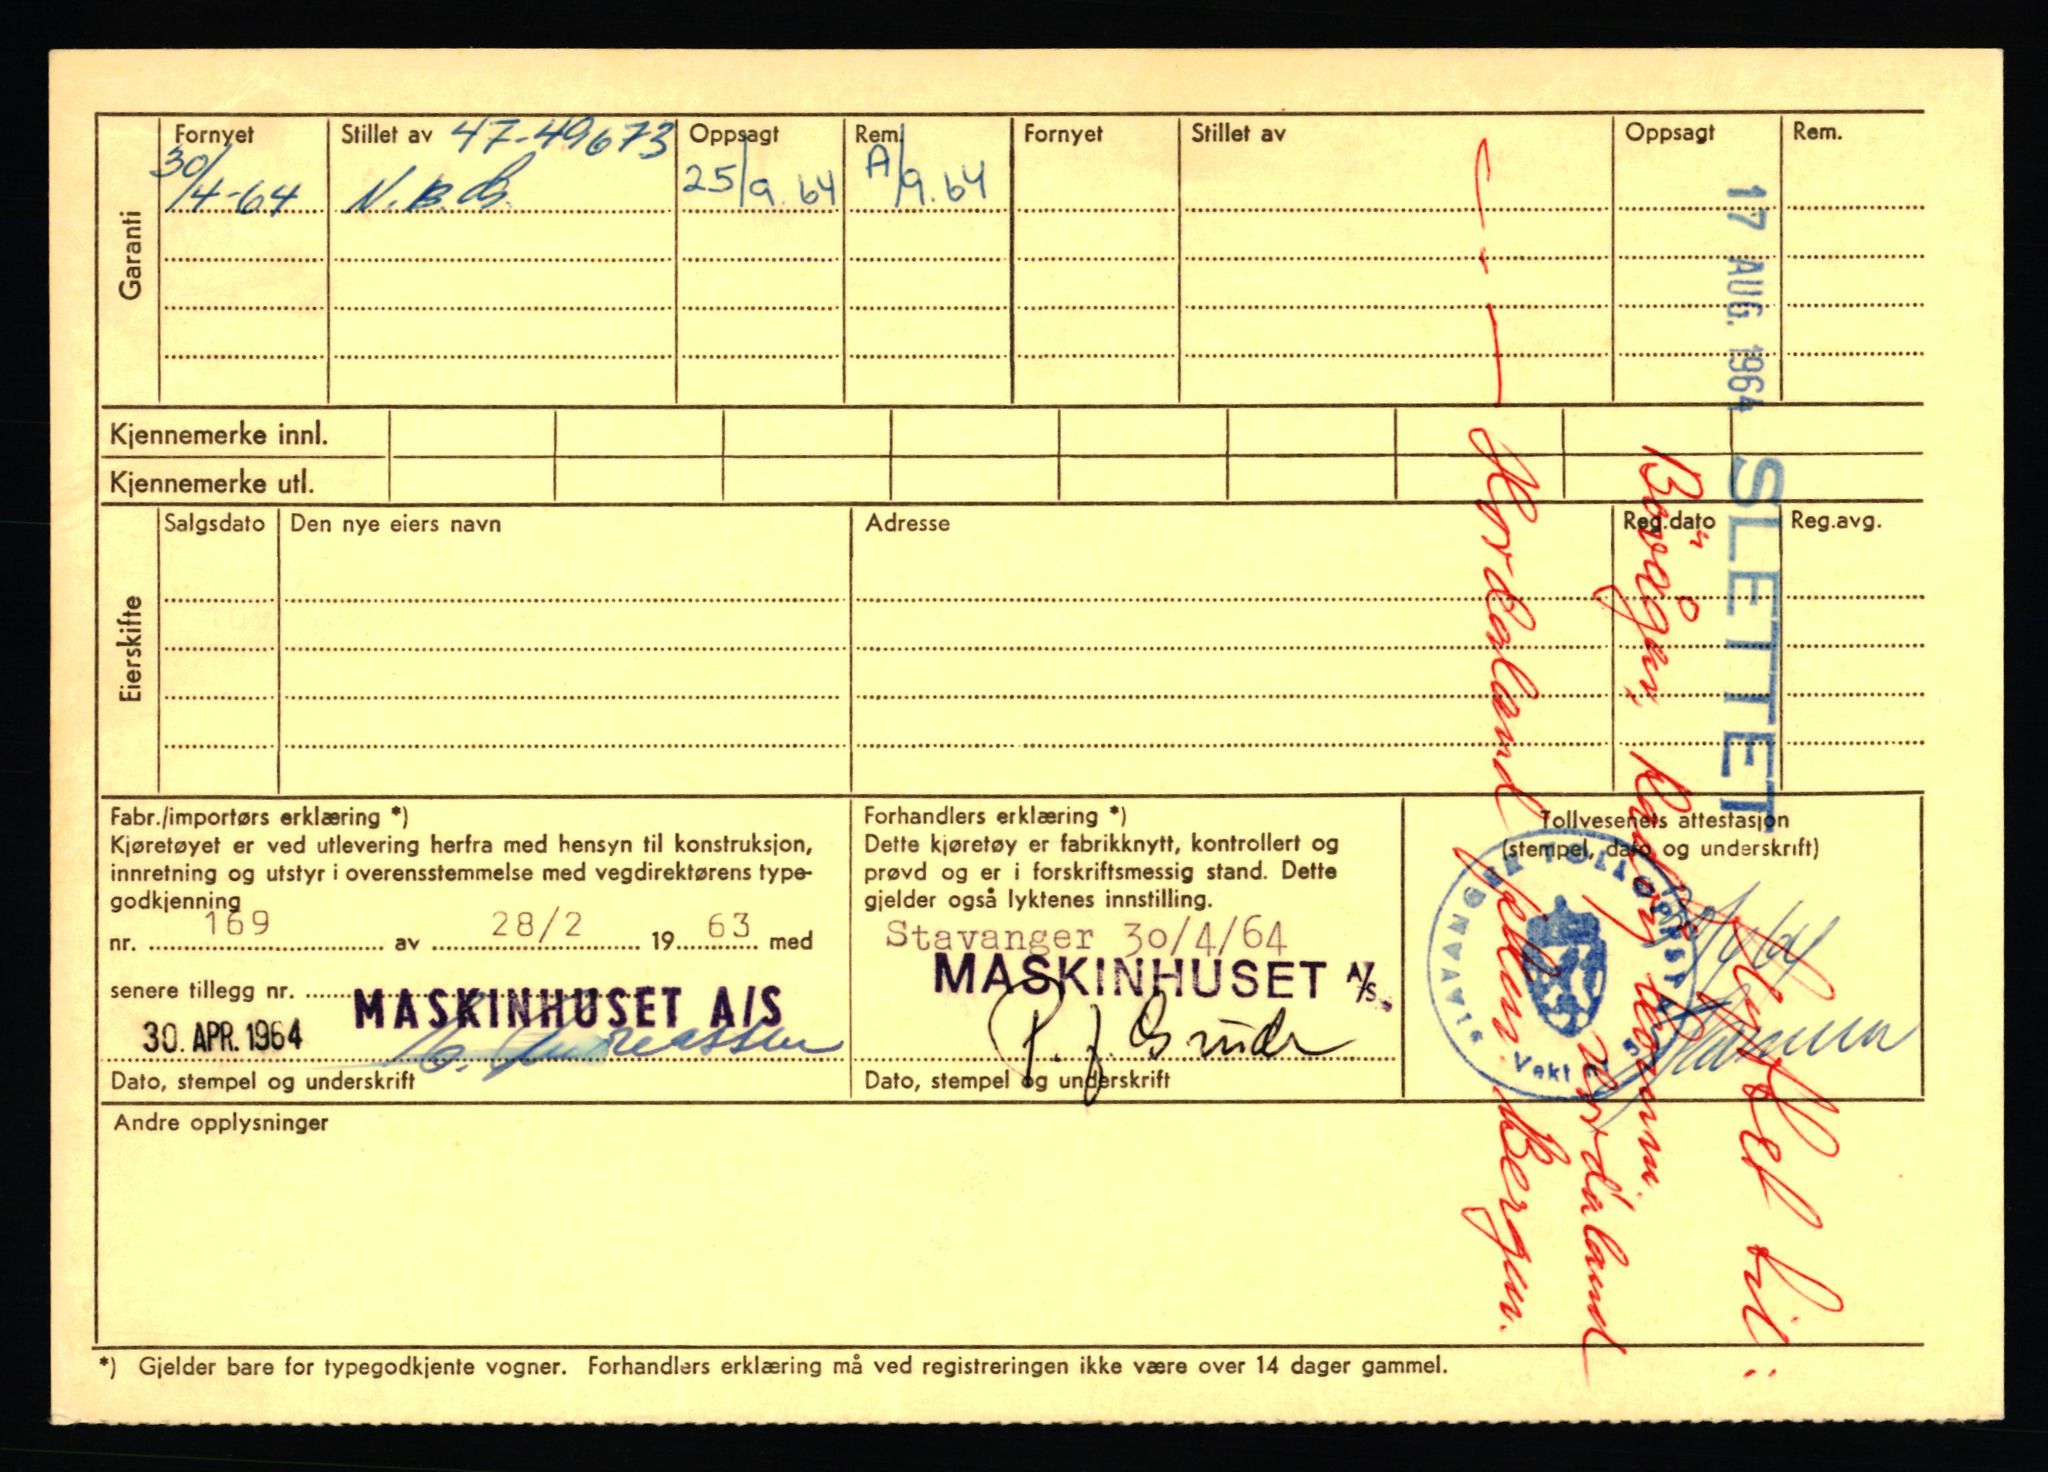 Garanti
Fornyet Stillet av 47-49673 Oppsagt Rem. Fornyet Stillet av Oppsagt Rem.
30/4-64 N.B. 25/9.64 A/9.64
17 AUG. 1964
SLETTET
Kjennemerke innl.
Kjennemerke utl.
Eierskifte
Salgsdato Den nye eiers navn Adresse Reg.dato Reg.avg.
Fabr./importørs erklæring *)
Kjøretøyet er ved utlevering herfra med hensyn til konstruksjon,
innretning og utstyr i overensstemmelse med vegdirektørens type-
godkjenning
nr. 169 av 28/2 19 63 med
senere tillegg nr.
MASKINHUSET A/S
30. APR. 1964
Dato, stempel og underskrift
Forhandlers erklæring *)
Dette kjøretøy er fabrikknytt, kontrollert og
prøvd og er i forskriftsmessig stand. Dette
gjelder også lyktenes innstilling.
Stavanger 30/4/64
MASKINHUSET A/S.
Dato, stempel og underskrift
Tollvesenets attestasjon
(stempel, dato og underskrift)
STAVANGER
Vakt
Flyttet til:
Bovågen,
Hordaland
Bergen.
Andre opplysninger
*) Gjelder bare for typegodkjente vogner. Forhandlers erklæring må ved registreringen ikke være over 14 dager gammel.